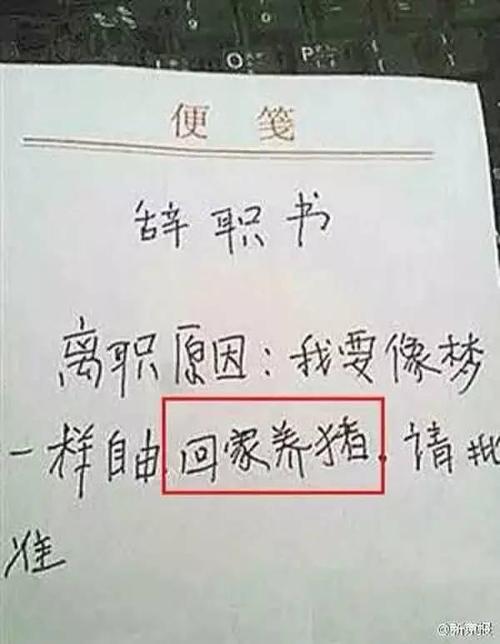 O P
便笺
辞职书
离职原因：我要像梦
一样自由回家养猪。请批
准
@新京报